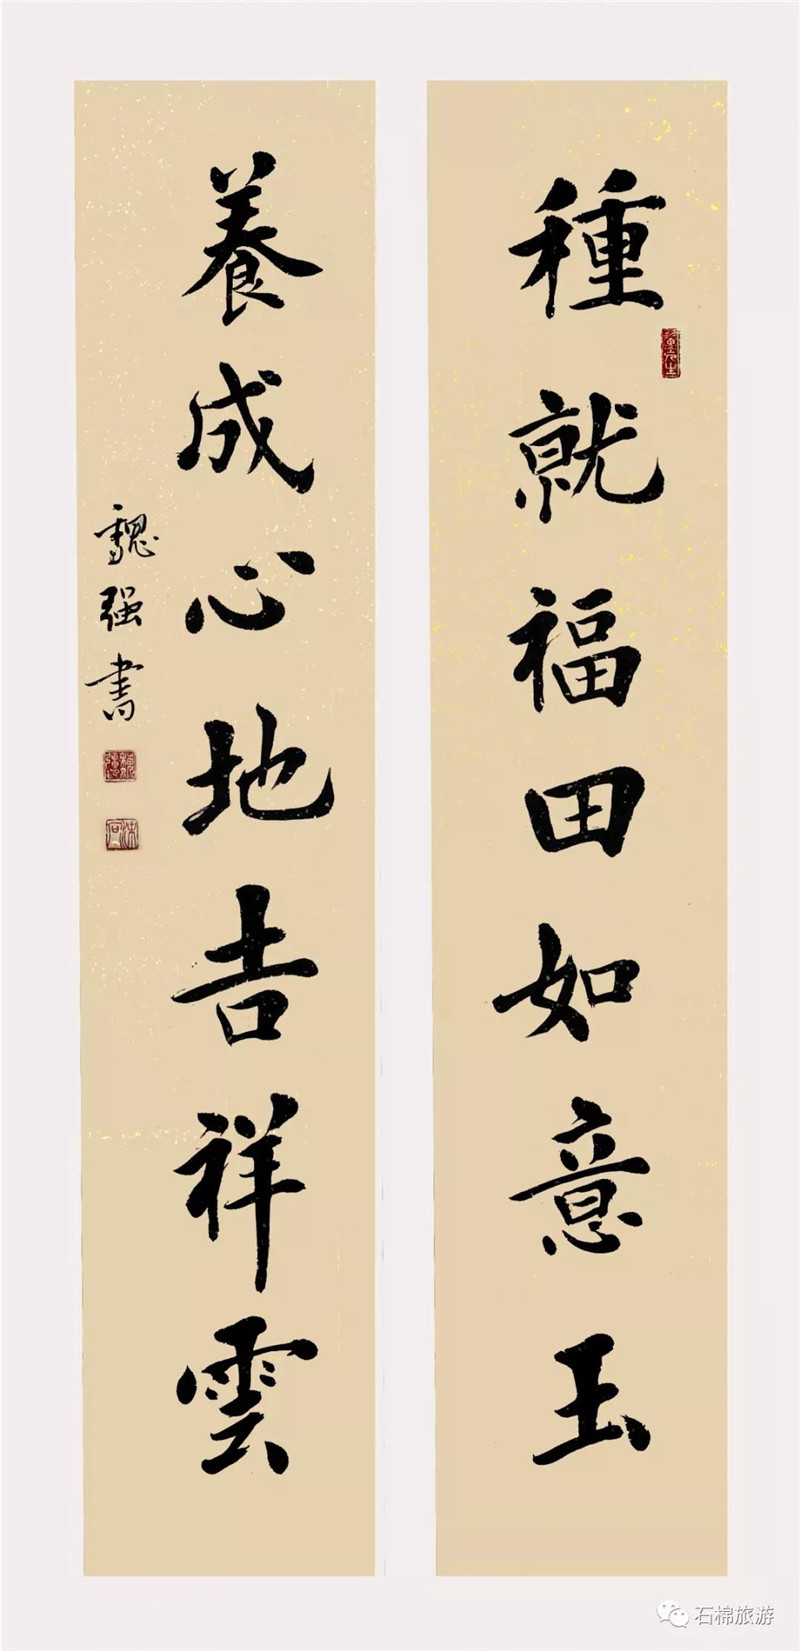 種就福田如意玉
養成心地吉祥雲
魏强書
石棉旅游